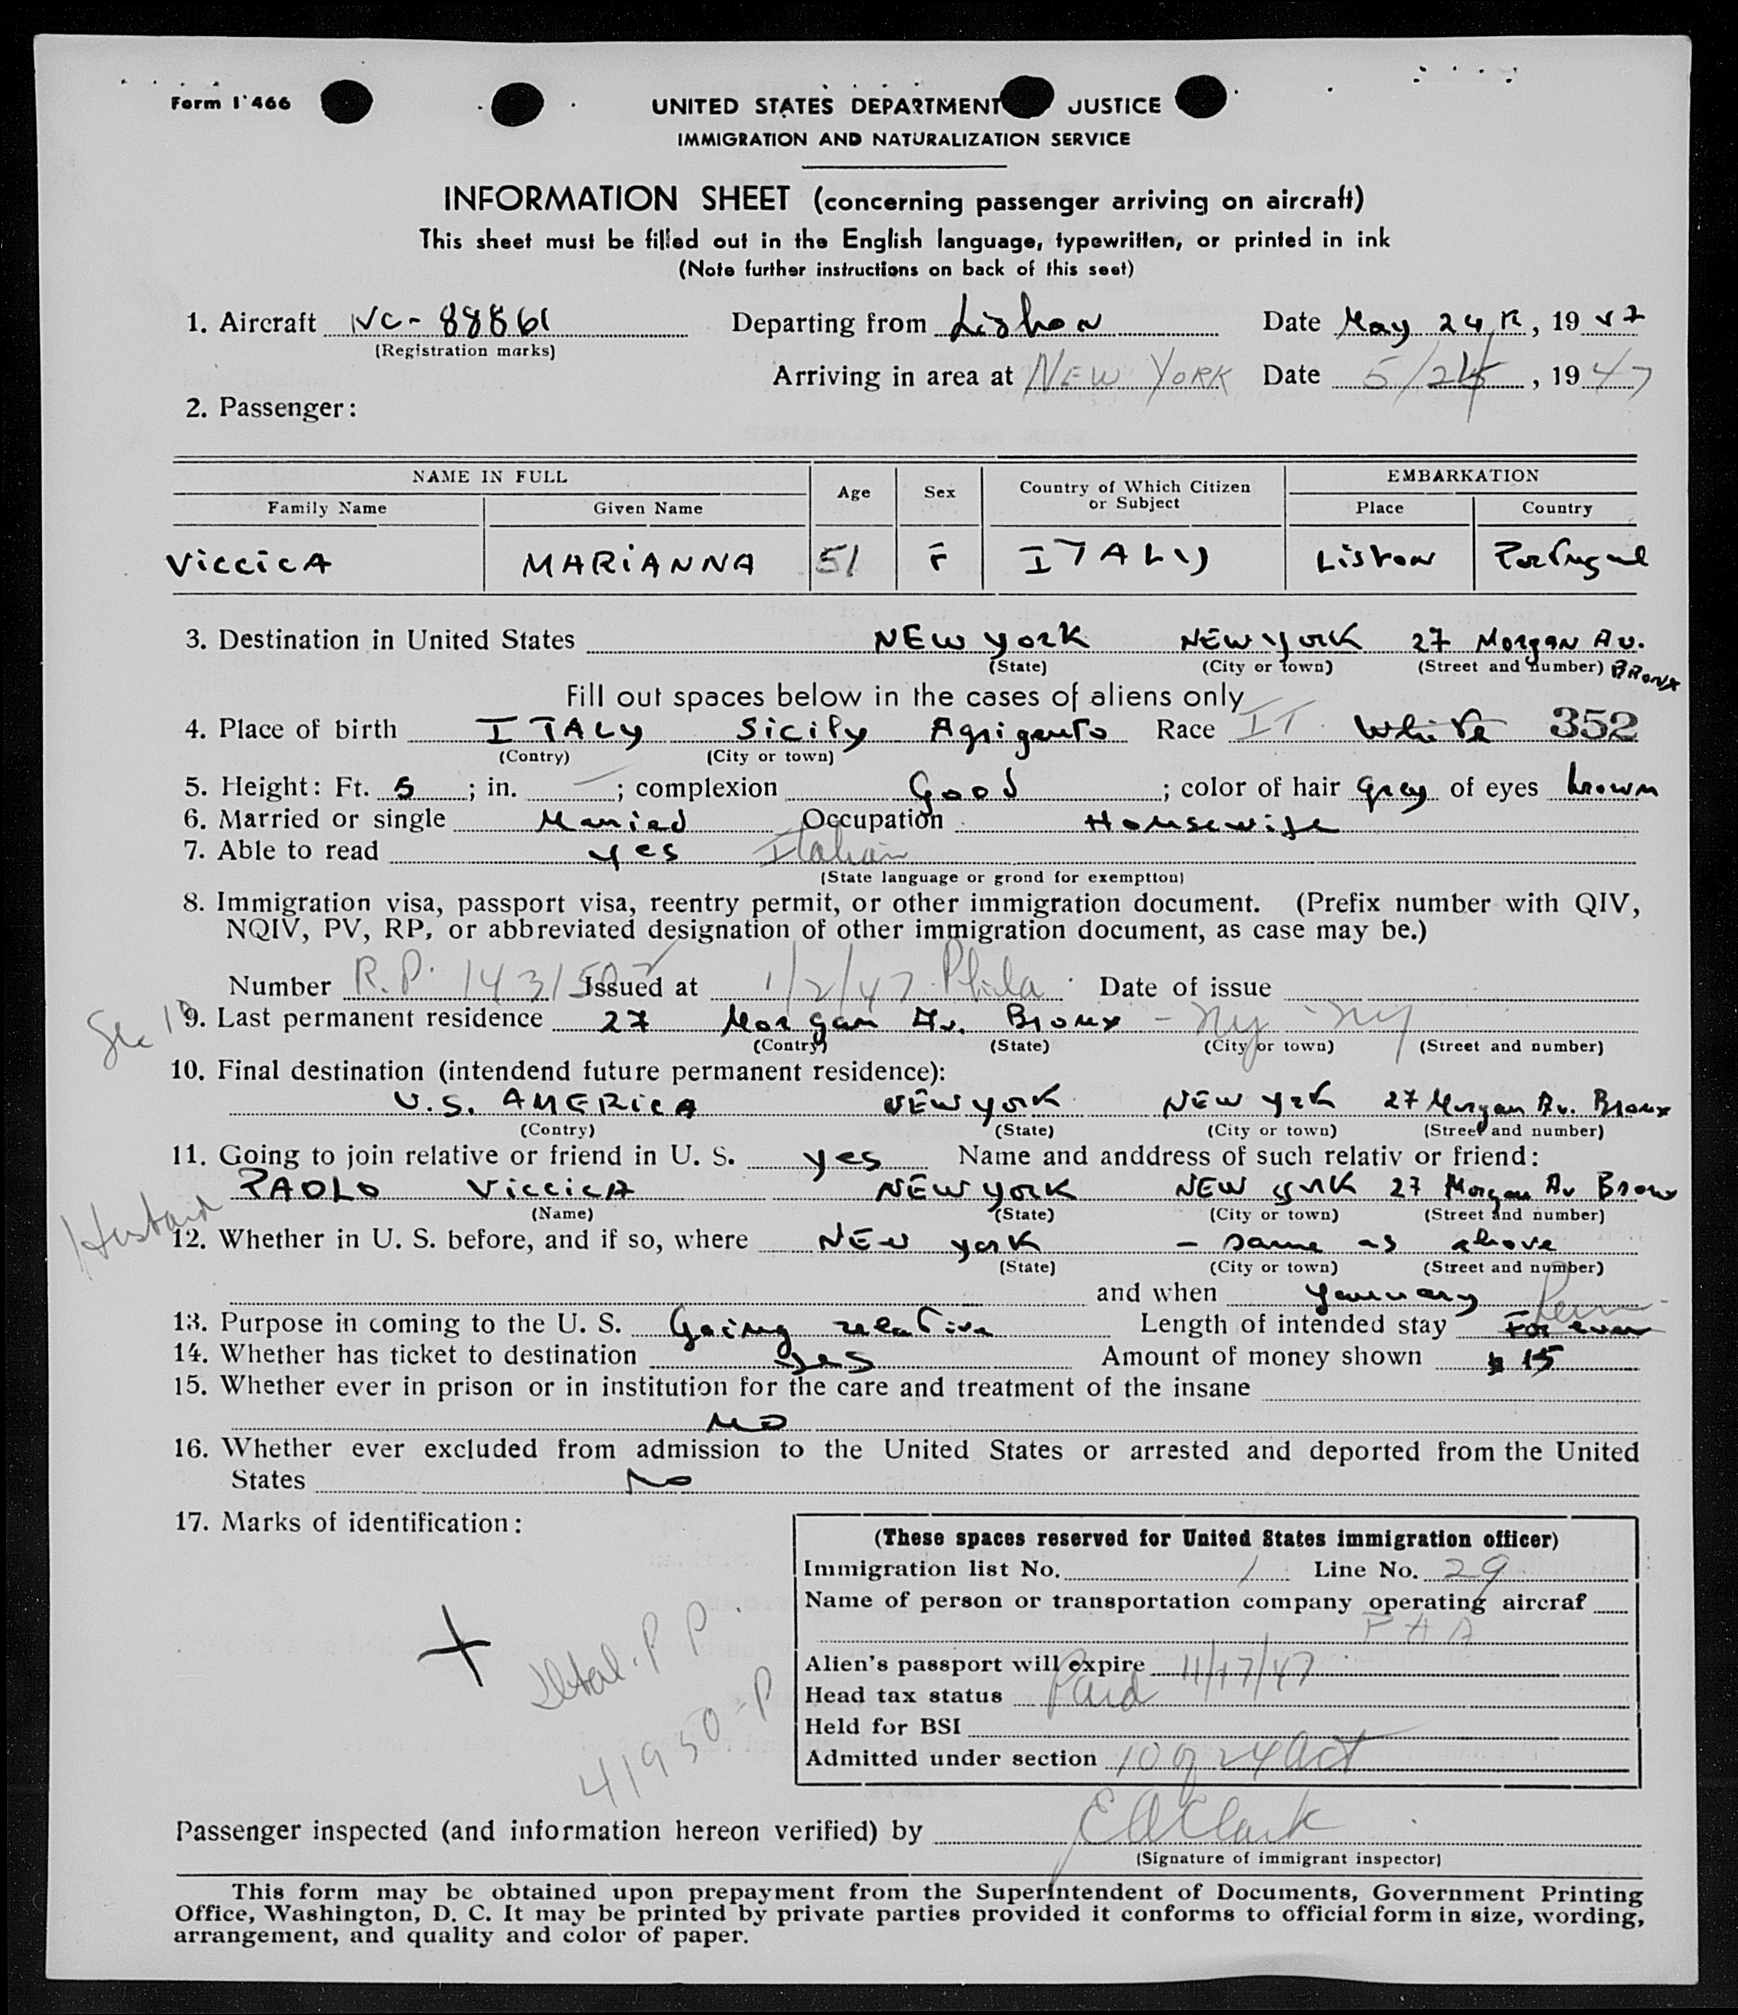 Form I-466
UNITED STATES DEPARTMENT JUSTICE
IMMIGRATION AND NATURALIZATION SERVICE
INFORMATION SHEET (concerning passenger arriving on aircraft)
This sheet must be filled out in the English language, typewritten, or printed in ink
(Note further instructions on back of this seet)
1. Aircraft NC-88861 Departing from Lisbon Date May 24, 1947
(Registration marks)
Arriving in area at NEW YORK Date 5/24, 1947
2. Passenger:
NAME IN FULL Age Sex Country of Which Citizen or Subject EMBARKATION
Family Name Given Name Place Country
ViccicA MARiANNA 51 F ITALY Lisbon Portugal
3. Destination in United States NEW YORK NEW YORK 27 Morgan Av.
(State) (City or town) (Street and number) BRONX
Fill out spaces below in the cases of aliens only
4. Place of birth ITALY Sicily Agrigento Race IT. White 352
(Contry) (City or town)
5. Height: Ft. 5; in. —; complexion Good; color of hair grey of eyes brown
6. Married or single Married Occupation Housewife
7. Able to read yes Italian
(State language or grond for exemptton)
8. Immigration visa, passport visa, reentry permit, or other immigration document. (Prefix number with QIV,
NQIV, PV, RP, or abbreviated designation of other immigration document, as case may be.)
Number R.P. 143150 Issued at 1/2/47 Phila. Date of issue
9. Last permanent residence 27 Morgan Av. Bronx - NY - NY
(Contry) (State) (City or town) (Street and number)
10. Final destination (intendend future permanent residence):
U.S. AMERICA NEW YORK NEW YORK 27 Morgan Av. Bronx
(Contry) (State) (City or town) (Street and number)
11. Going to join relative or friend in U. S. yes Name and anddress of such relativ or friend:
Husband PAOLO ViccicA NEW YORK NEW YORK 27 Morgan Av Bronx
(Name) (State) (City or town) (Street and number)
12. Whether in U. S. before, and if so, where NEW YORK - same as above
(State) (City or town) (Street and number)
and when January
13. Purpose in coming to the U. S. Going relative Length of intended stay Forever Perm.
14. Whether has ticket to destination yes Amount of money shown $ 15
15. Whether ever in prison or in institution for the care and treatment of the insane
NO
16. Whether ever excluded from admission to the United States or arrested and deported from the United
States No
17. Marks of identification:
(These spaces reserved for United States immigration officer)
Immigration list No. 1 Line No. 29
Name of person or transportation company operating aircraf
P A A
Alien's passport will expire 11/17/47
Head tax status Paid
Held for BSI
Admitted under section 10 of 24 Act
Ital. P P.
41950-P
Passenger inspected (and information hereon verified) by E A Clark
(Signature of immigrant inspector)
This form may be obtained upon prepayment from the Superintendent of Documents, Government Printing
Office, Washington, D. C. It may be printed by private parties provided it conforms to official form in size, wording,
arrangement, and quality and color of paper.